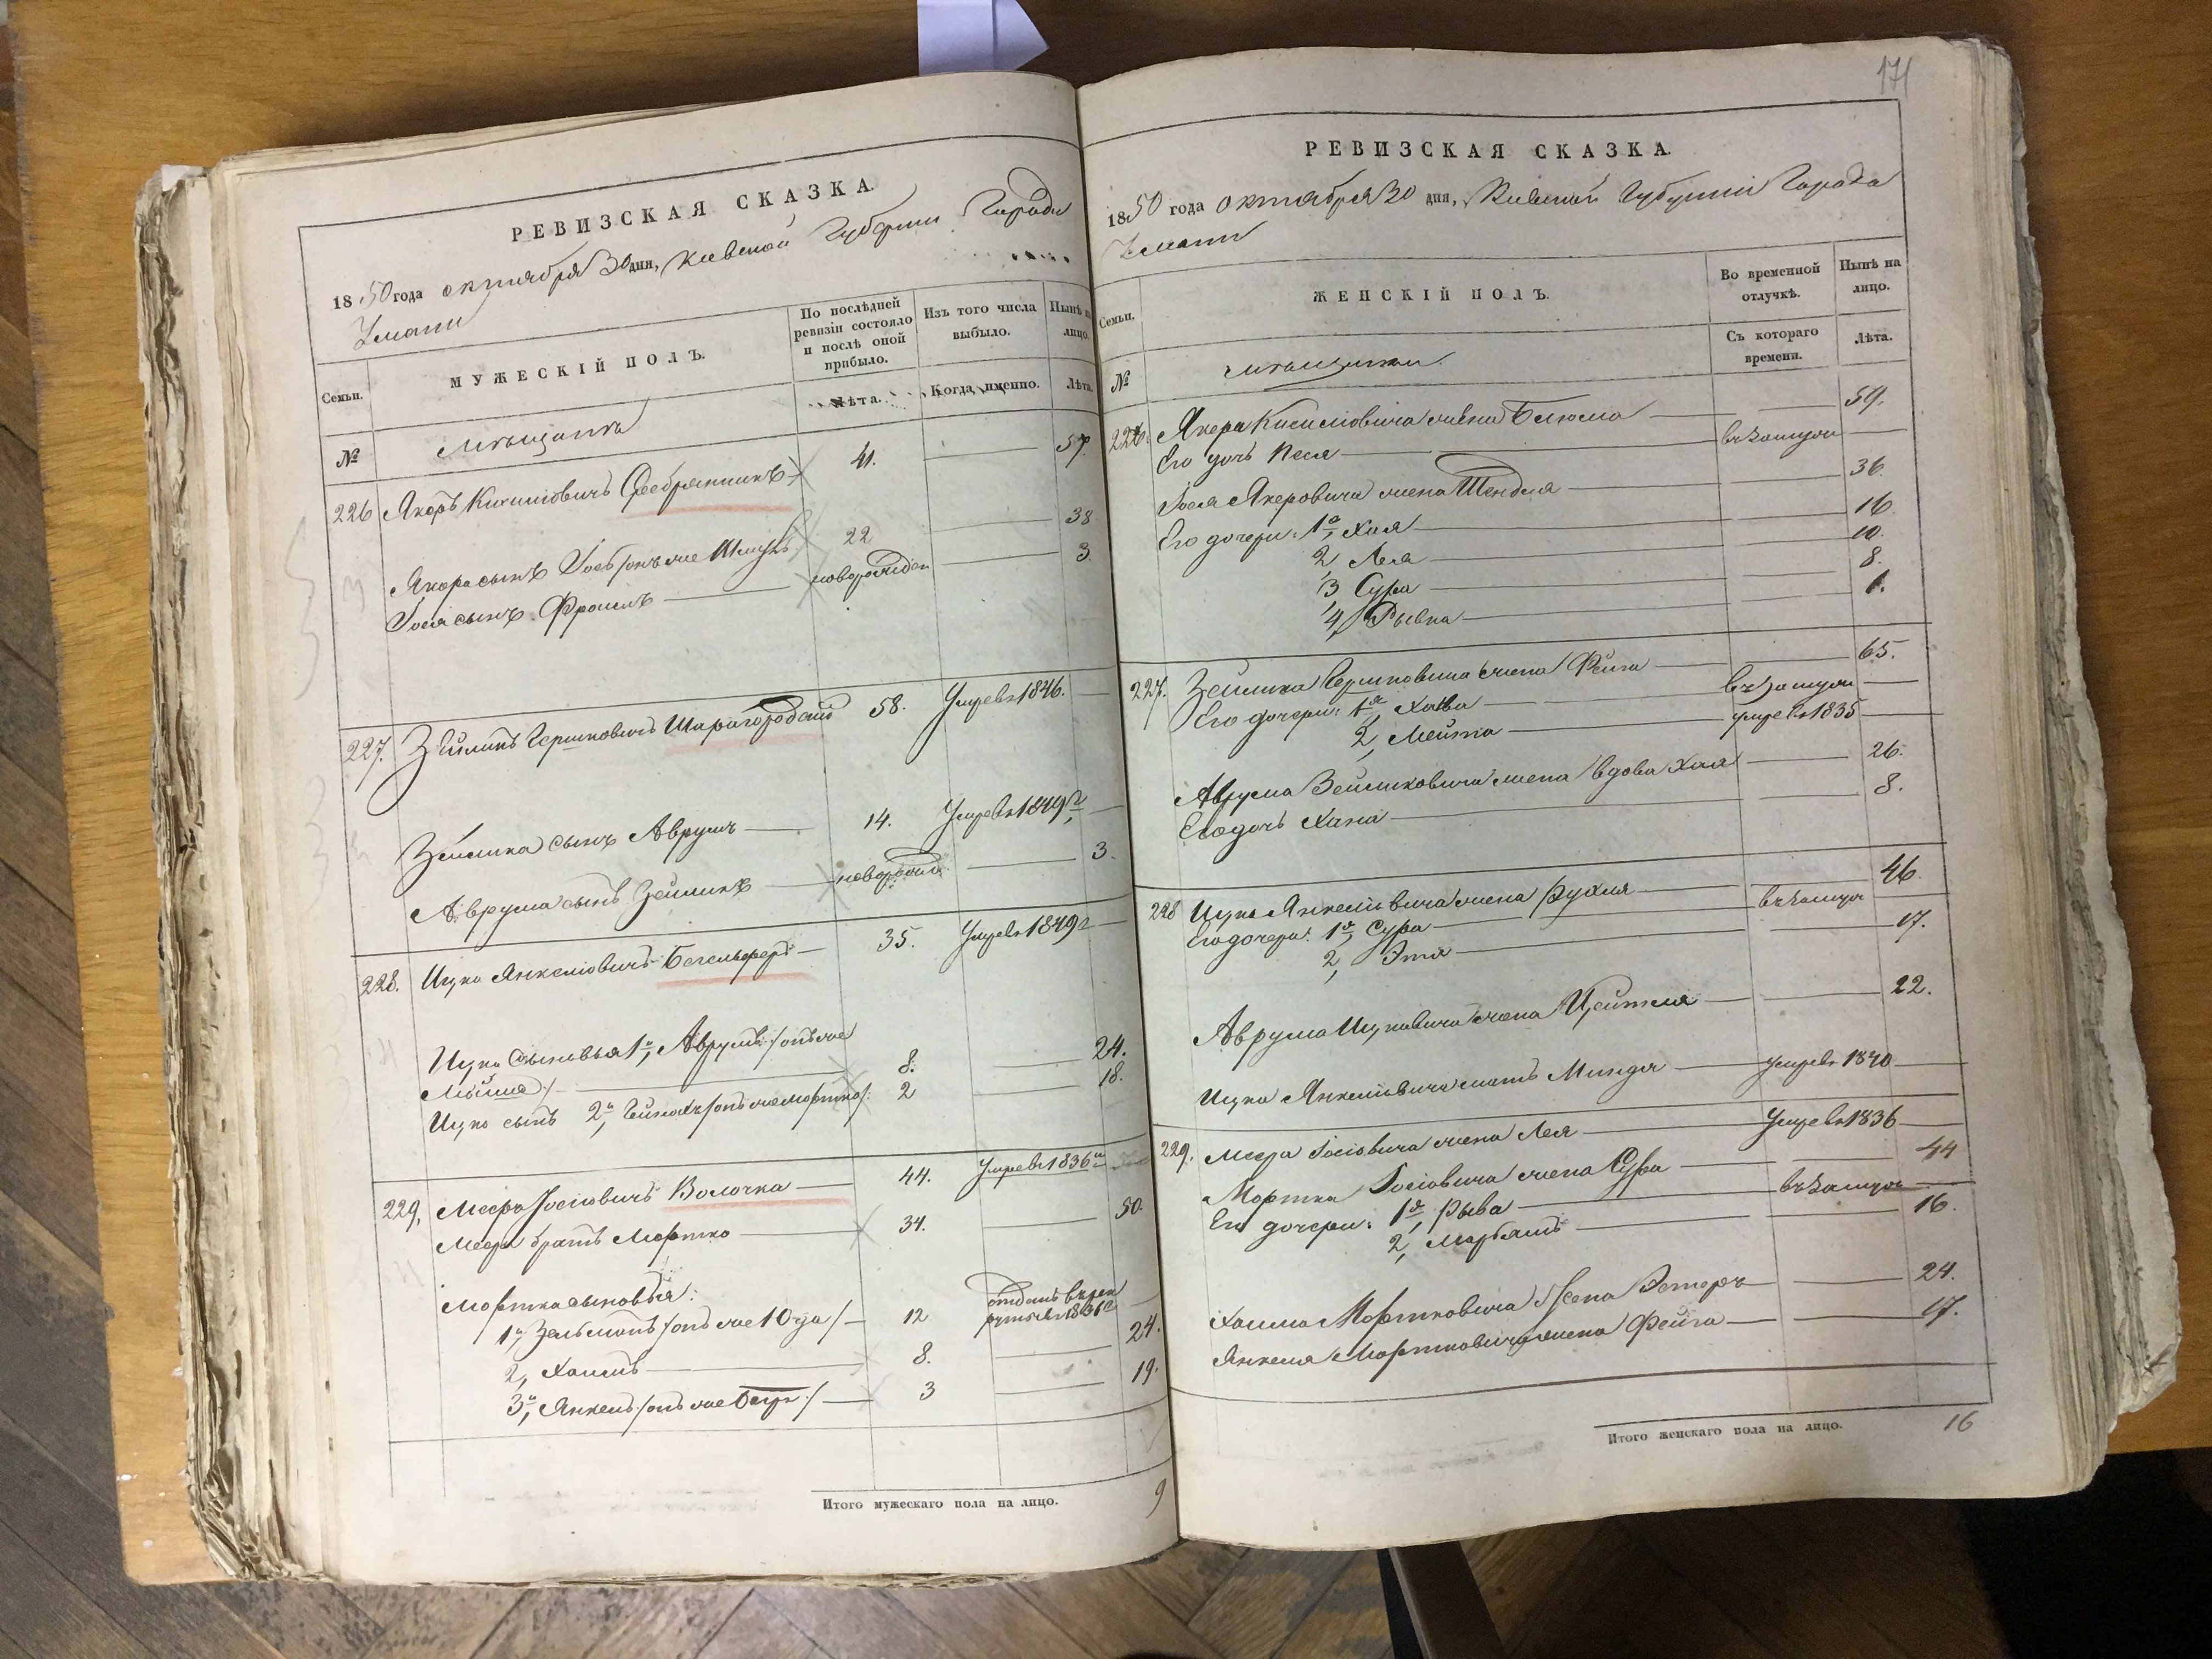 РЕВИЗСКАЯ СКАЗКА.
1850 года октября 30 дня, Киевской Губернии Города
Умани
Семьи.
МУЖЕСКІЙ ПОЛЪ.
По послѣдней ревизіи состояло и послѣ оной прибыло.
Изъ того числа выбыло.
Нынѣ на лицо.
№
Мѣщане
Лѣта.
Когда именно.
Лѣта.
226 Якоръ Кисилiовичъ Сребрянникъ 41. 57.
Якора сынъ Іось /онъ же Шмуль 22 38
Іося сынъ Фроимъ новорожден 3.
227. Зейликъ Гершковичъ Шарагородскій 58. Умре въ 1846.
Зейлика сынъ Аврумъ 14. Умре въ 1849 г.
Аврума сынъ Зейликъ новорожд 3.
228. Ицко Янкелiовичъ Бегельферъ 35. Умре въ 1849 г
Ицка сыновья 1й, Аврумъ /онъ же
Мойше/ 8. 24.
Ицка сынъ 2й, /онъ же Мортко/: 2 18.
229. Мееръ Іосiовичъ Волочка 44. Умре въ 1836 г
Меера братъ Мортко 34. 50.
Мортка сыновья:
1й, Зельманъ /онъ же 10 года/ 12 отданъ въ рек
руты въ 1836 г
2, Хаимъ 8. 24.
3й, Янкель /онъ же Беръ/ 3 19.
Итого мужескаго пола на лицо. 9
171
РЕВИЗСКАЯ СКАЗКА.
1850 года октября 30 дня, Киевской Губерніи Города
Умани
Семьи.
ЖЕНСКІЙ ПОЛЪ.
Во временной отлучкѣ.
Нынѣ на лицо.
№
Мѣщанки
Съ котораго времени.
Лѣта.
226. Якора Кисилiовича жена Блюма 59.
Его дочь Песя въ замуж
Іося Якоровича жена Шендля 36.
Его дочери: 1я, Хая 16
2, Лея 10.
3, Сура 8.
4, Рывка 1.
227. Зейлика Гершковича жена Фейга 65.
Его дочери: 1я, Хава въ замуж
2, Мейта умре въ 1835
Аврума Зейликовича жена вдова Хая 26.
Его дочь Хана 8.
228 Ицка Янкелiовича жена Рухля 46.
Его дочери: 1я, Сура въ замуж
2, Этя 17.
Аврума Ицковича жена Цейтля 22.
Ицка Янкелiовича мать Миндя умре въ 1840
229. Меера Іосiовича жена Лея Умре въ 1836
Мортка Іосiовича жена Сура 44
Его дочери: 1я, Рыва въ замуж
2, Марьямъ 16.
Хаима Мортковича жена Эстеръ 24.
Янкеля Мортковича жена Фейга 17.
Итого женскаго пола на лицо. 16